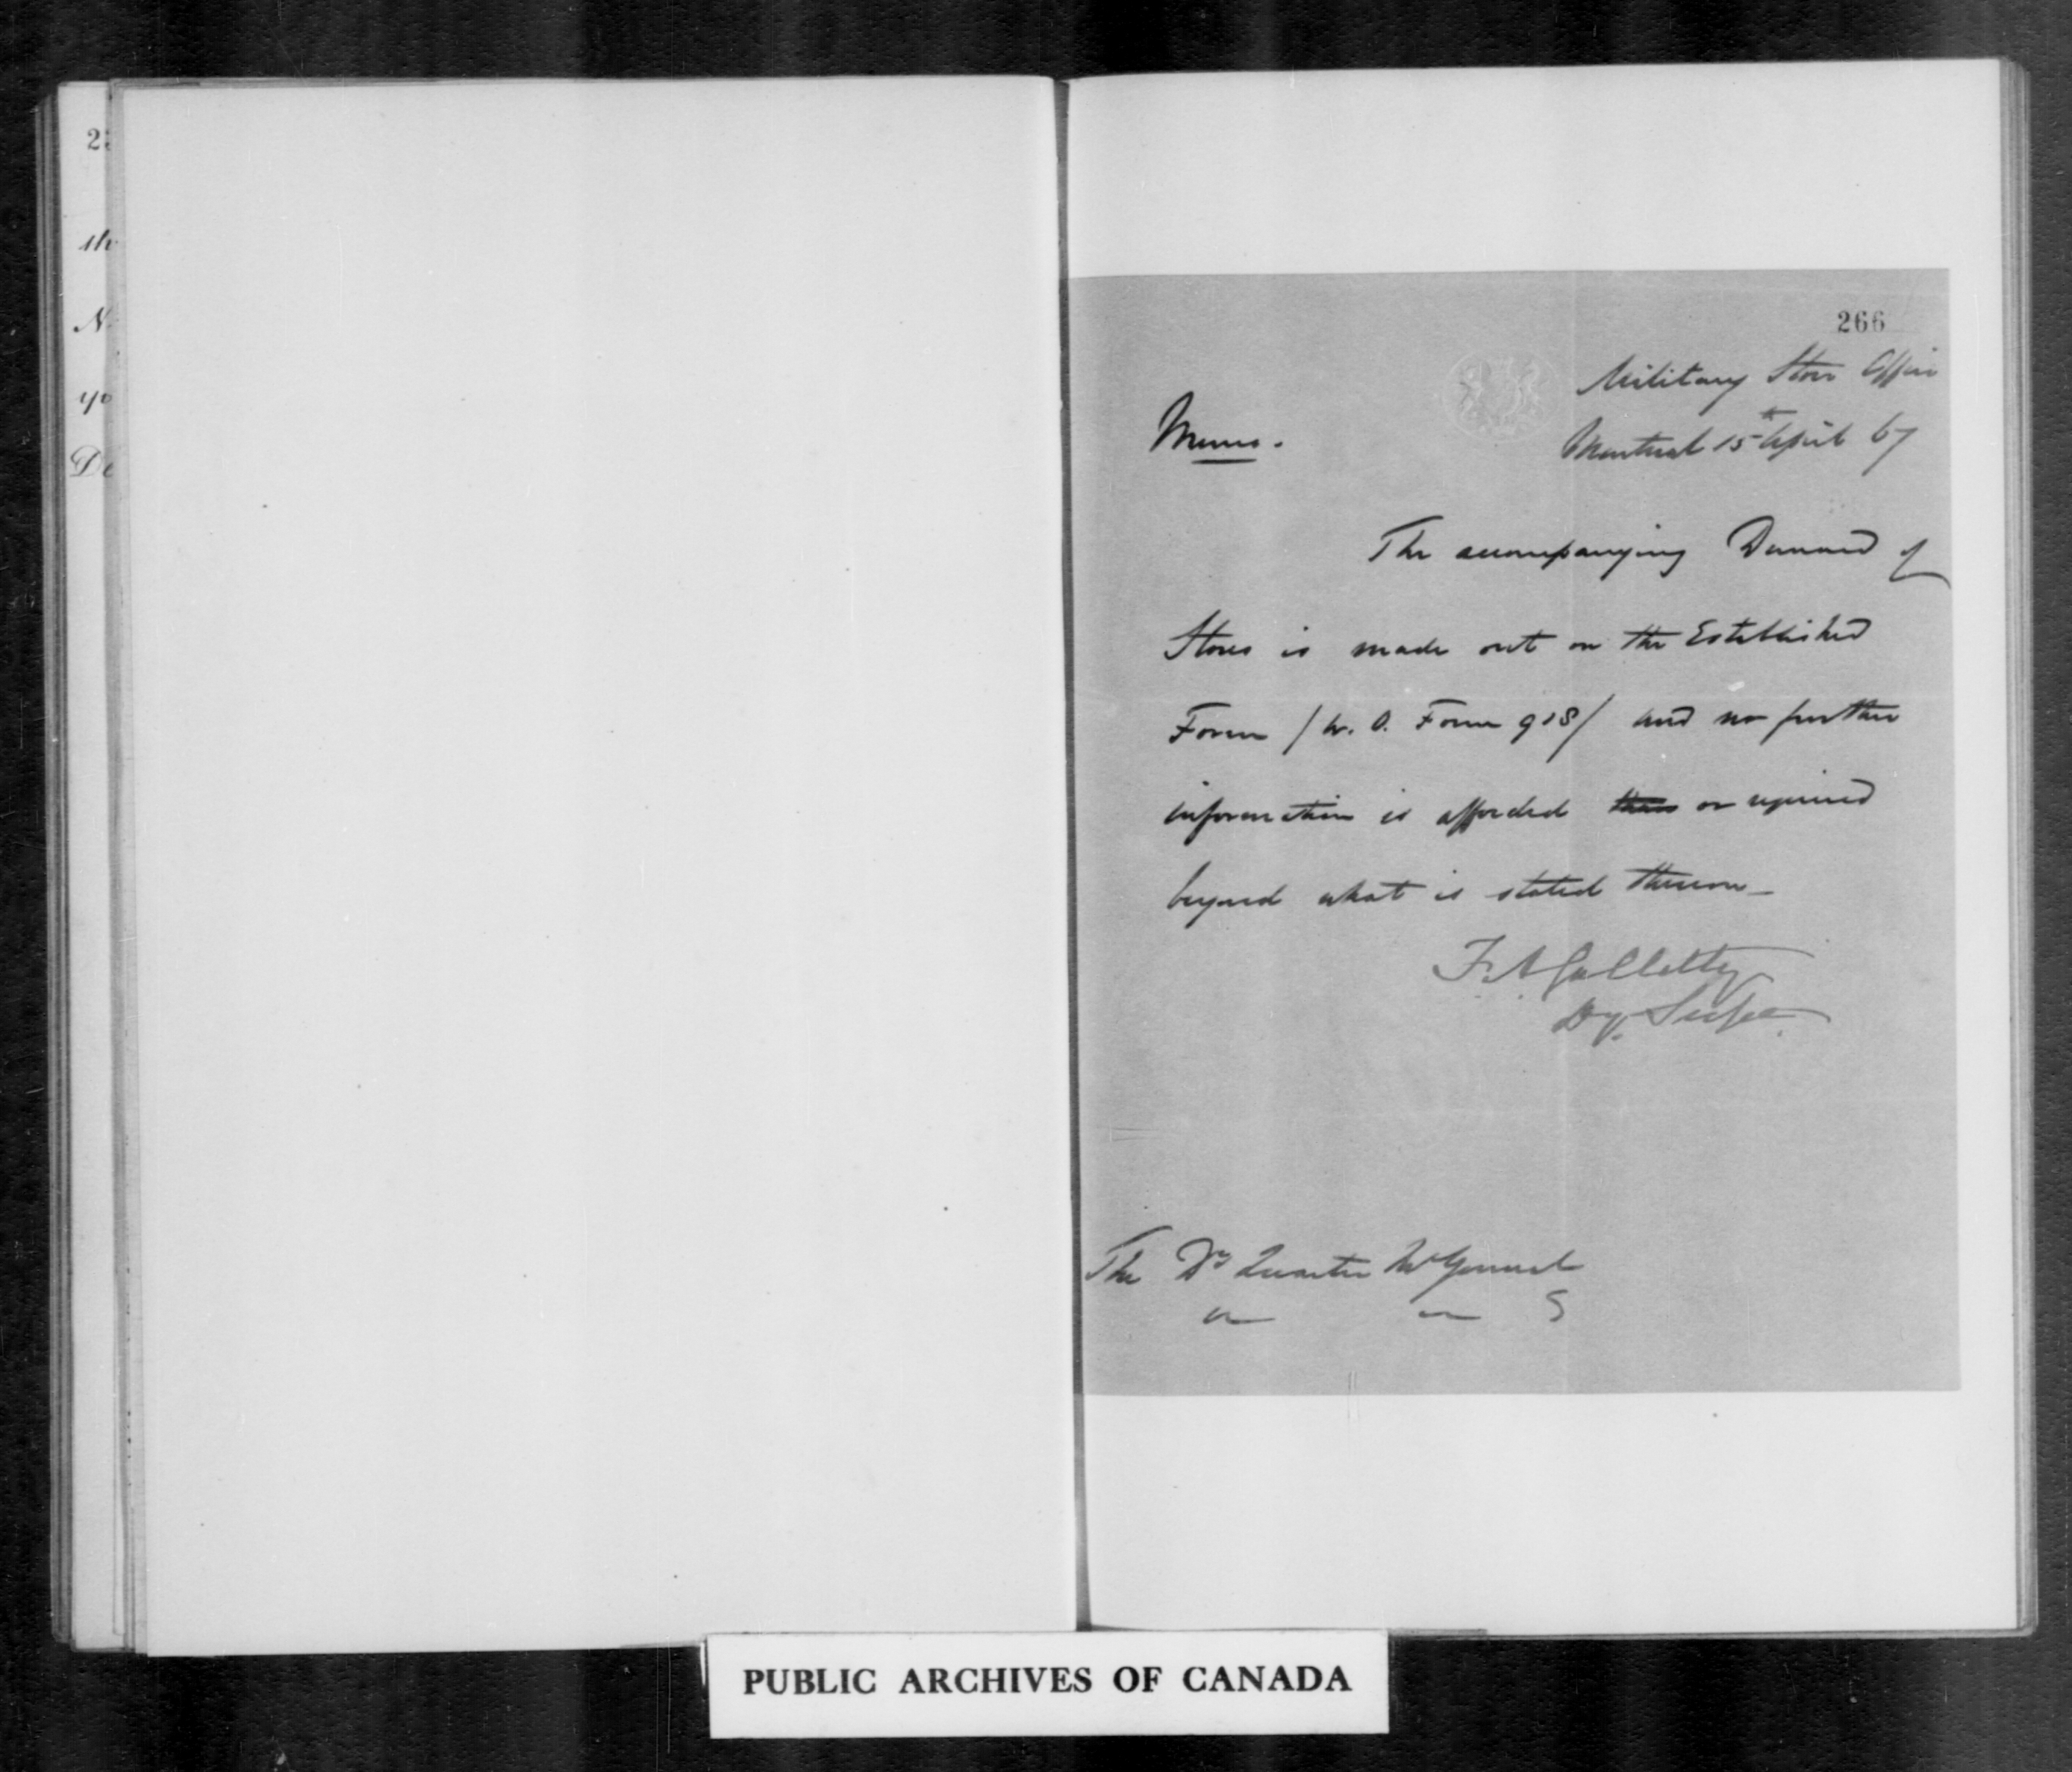 22
th
N
yo
De
266
Military Store Office
Montreal 15th April 67
Memo.
The accompanying Demand of
Stores is made out on the Established
Form / W. O. Form 918 / and no further
information is afforded or required
beyond what is stated thereon_
F. A. Galletty
Dy. Supt
The Dy Quarter Mr General
PUBLIC ARCHIVES OF CANADA